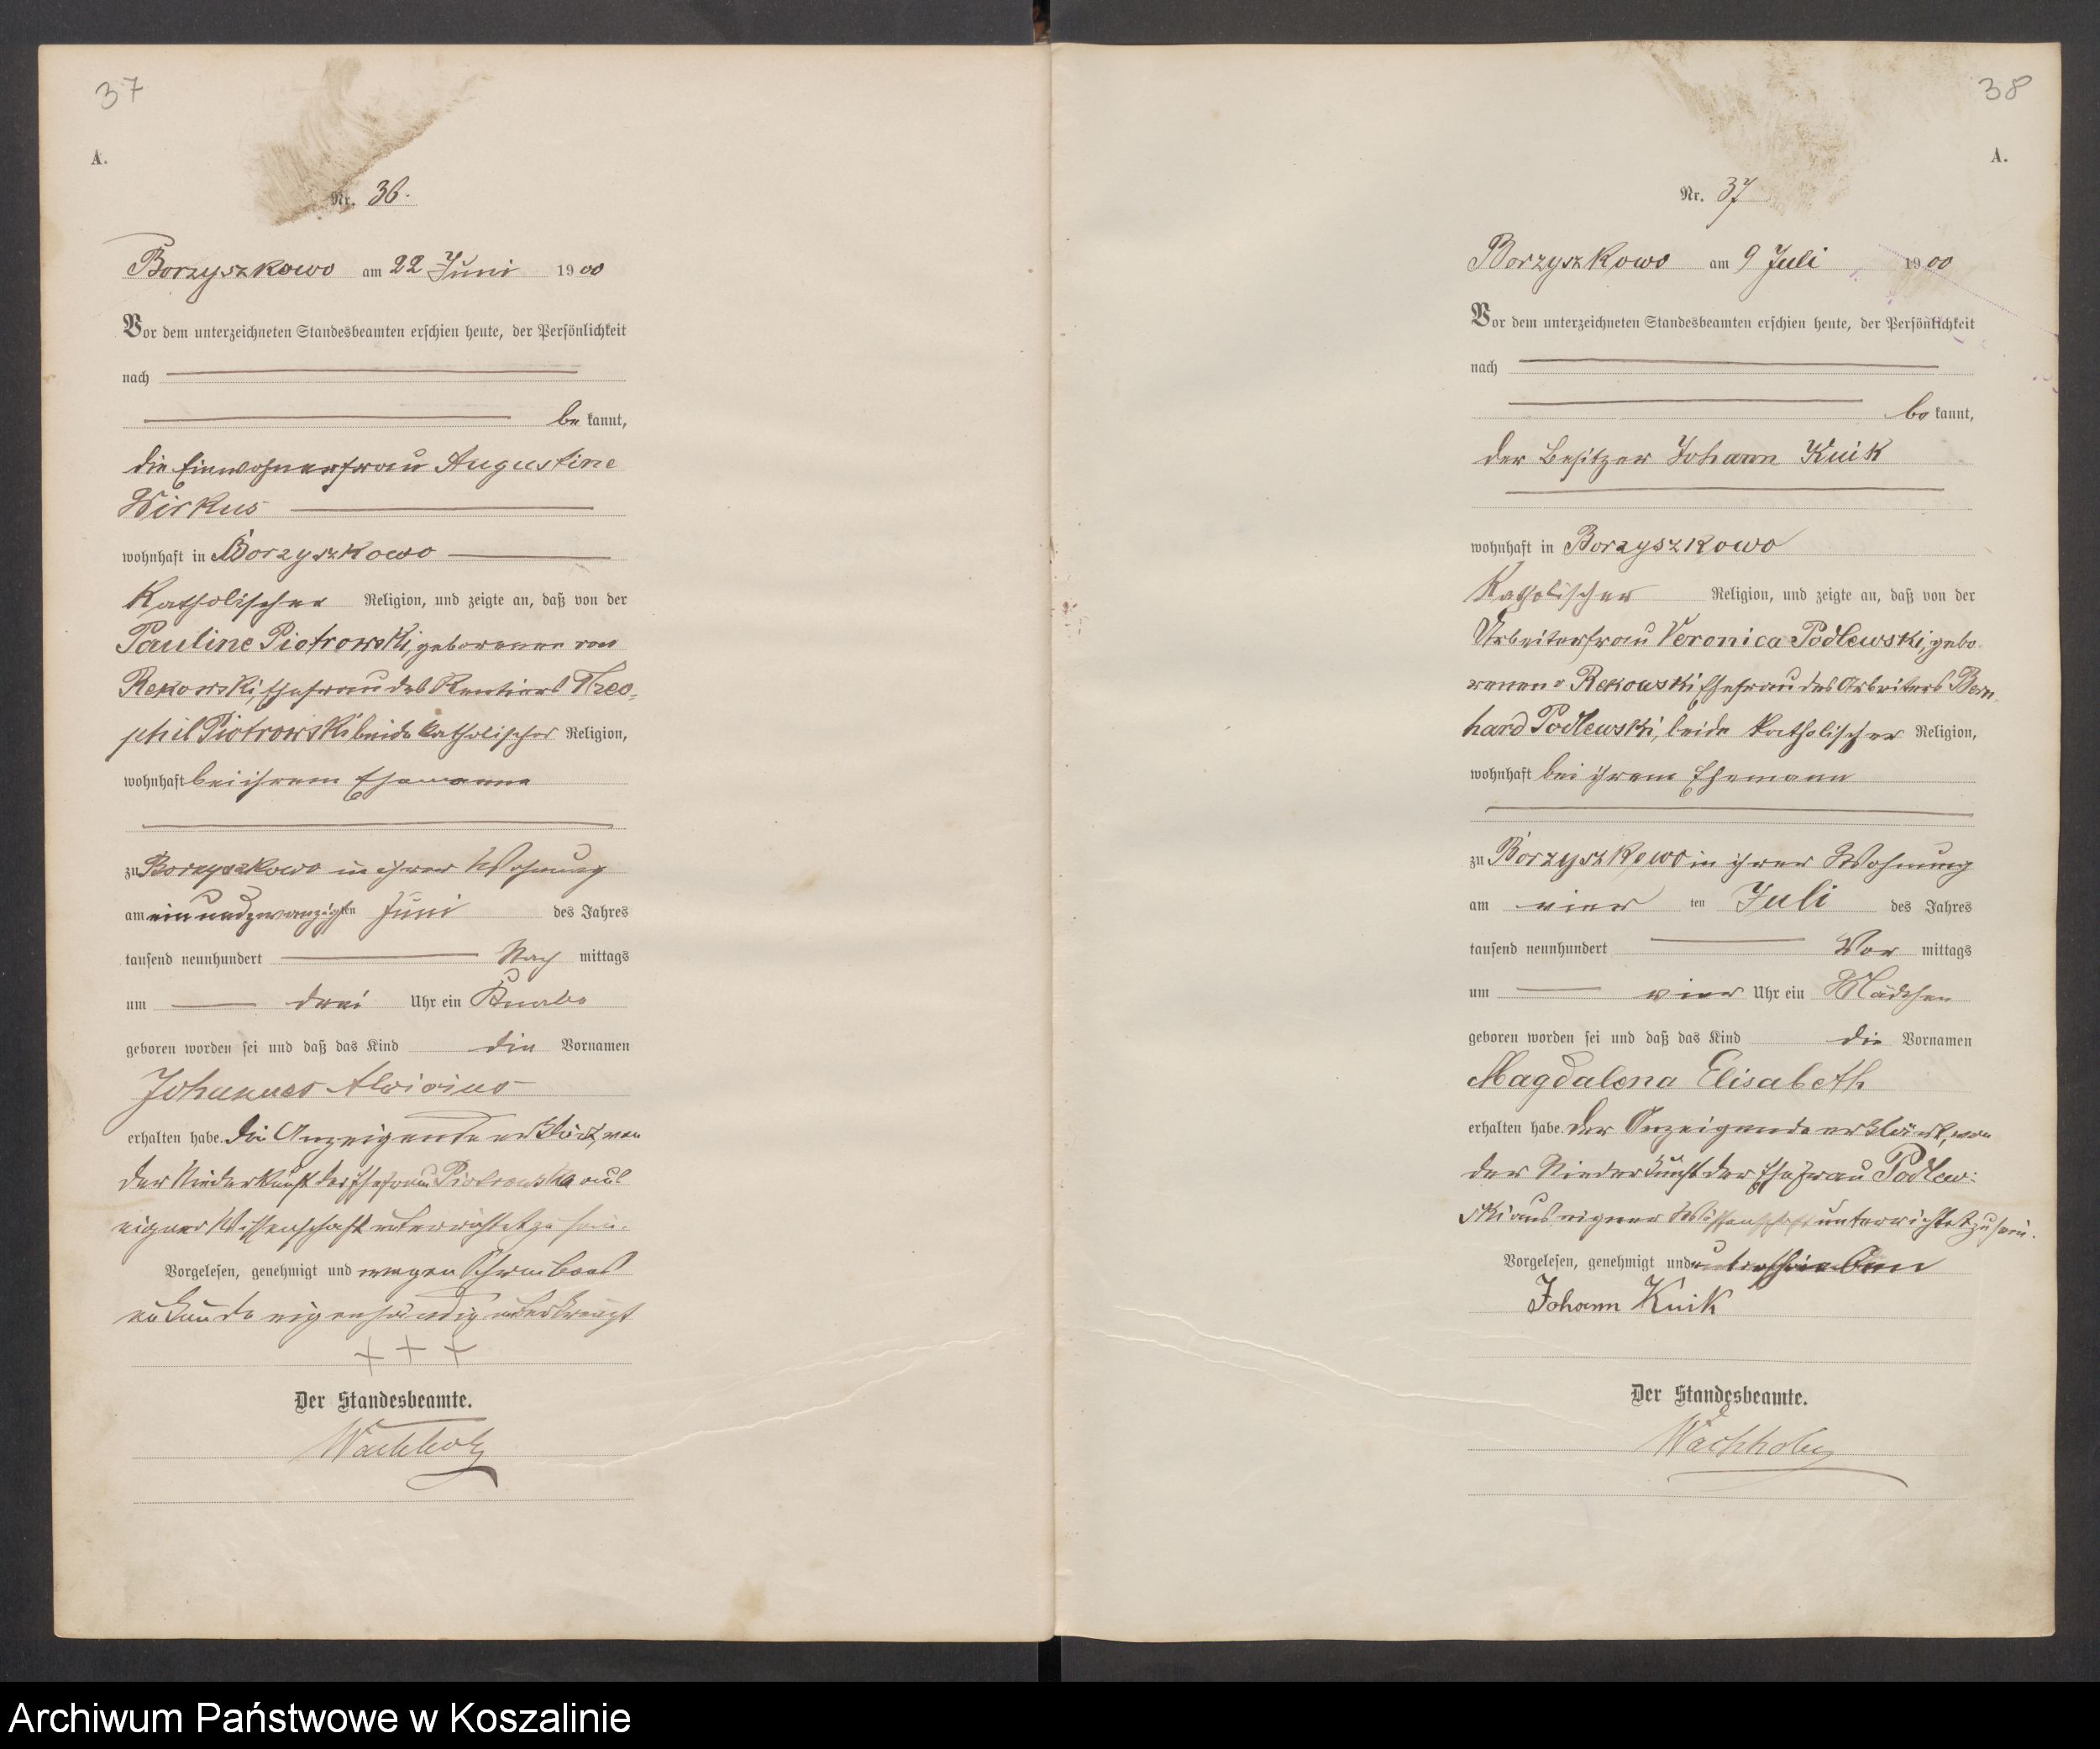 37
A.
Nr. 36.
Borzyszkowo am 22 Juni 1900
Vor dem unterzeichneten Standesbeamten erschien heute, der Persönlichkeit
nach
be kannt,
die Einwohnerfrau Augustine
Wirkus
wohnhaft in Borzyszkowo
Katholischer Religion, und zeigte an, daß von der
Pauline Piotrowski, geborenen von
Rekowski, Ehefrau des Rentiers Theo-
phil Piotrowski beide katholischer Religion,
wohnhaft bei ihrem Ehemanne
zu Borzyszkowo in ihrer Wohnung
am ein und zwanzigsten Juni des Jahres
tausend neunhundert Nach mittags
um drei Uhr ein Knabe
geboren worden sei und daß das Kind die Vornamen
Johannes Aloisius
erhalten habe. Die Anzeigende erklärt, von
der Niederkunft der Ehefrau Piotrowska aus
eigner Wissenschaft unterrichtet zu sein.
Vorgelesen, genehmigt und wegen Schreibens
unkunde eigenhändig unterkreuzt
+ + +
Der Standesbeamte.
Wachholz
38
A.
Nr. 37
Borzyszkowo am 9 Juli 1900
Vor dem unterzeichneten Standesbeamten erschien heute, der Persönlichkeit
nach
be kannt,
der Besitzer Johann Kuik
wohnhaft in Borzyszkowo
Katholischer Religion, und zeigte an, daß von der
Arbeiterfrau Veronica Podlewski, gebo-
renene Rekowski Ehefrau des Arbeiters Bern-
hard Podlewski, beide katholischer Religion,
wohnhaft bei ihrem Ehemann
zu Borzyszkowo in ihrer Wohnung
am vier ten Juli des Jahres
tausend neunhundert Vor mittags
um vier Uhr ein Mädchen
geboren worden sei und daß das Kind die Vornamen
Magdalena Elisabeth
erhalten habe. Der Anzeigende erklärt, von
der Niederkunft der Ehefrau Podlew-
ski aus eigner Wissenschaft unterrichtet zu sein.
Vorgelesen, genehmigt und unterschrieben
Johann Kuik
Der Standesbeamte.
Wachholz
Archiwum Państwowe w Koszalinie